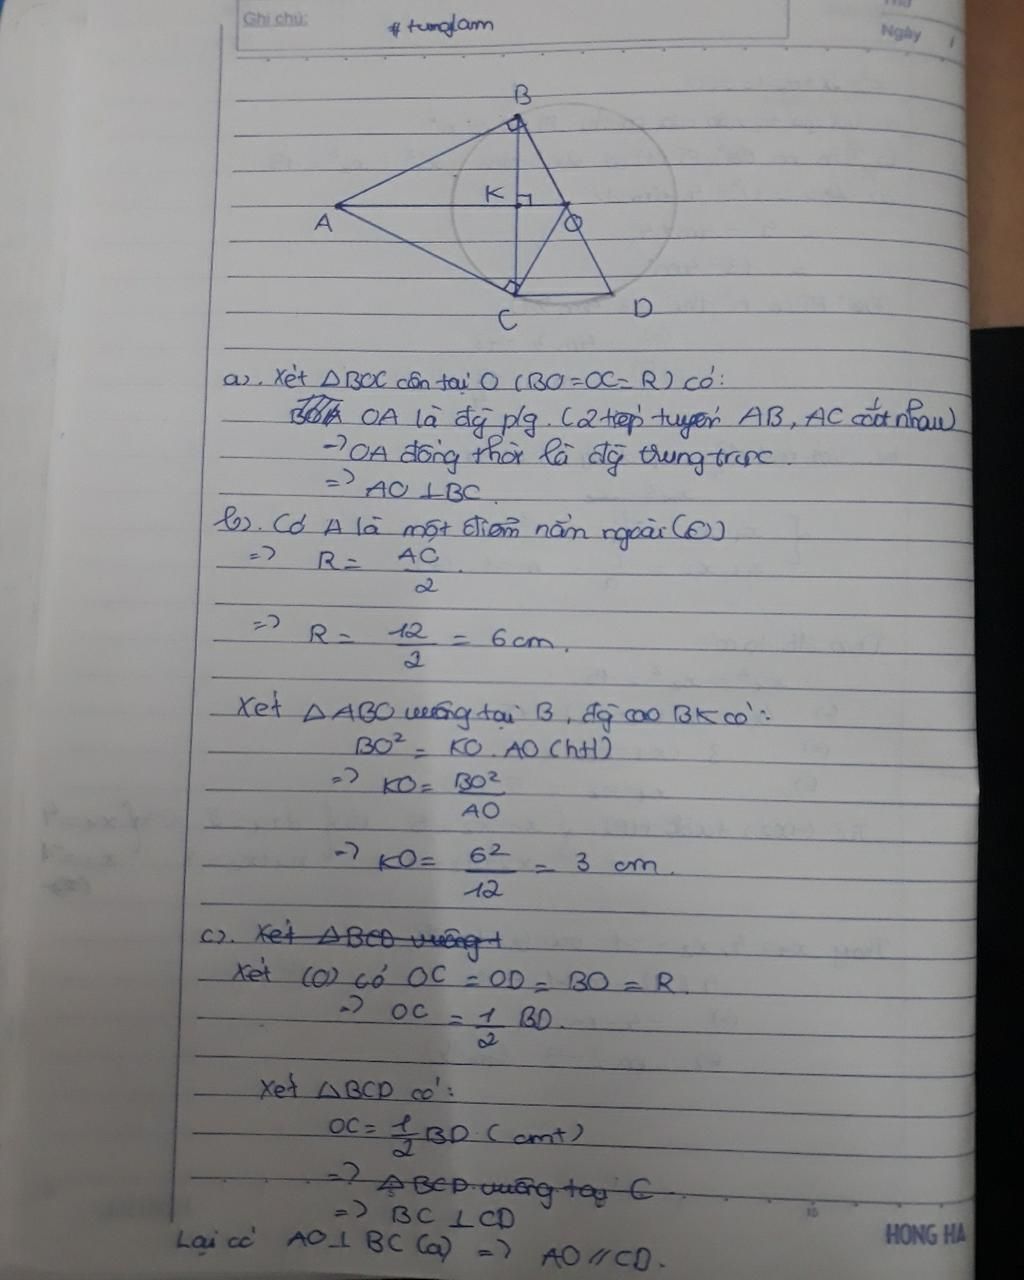 Ghi chú:
#tunglam
Ngày
B
K
A
O
C
D
a). Xét △BOC cân tại O (BO=OC=R) có:
OA là đg p/g. (2 tiếp tuyến AB, AC cắt nhau)
=> OA đồng thời là đg trung trực.
=> AO ⊥ BC.
b). Có A là một điểm nằm ngoài (O)
=> R = AC/2.
=> R = 12/2 = 6cm.
Xét △ABO vuông tại B, đg cao BK có:
BO² = KO. AO (htl)
=> KO = BO²/AO
=> KO = 6²/12 = 3 cm.
c). Xét △BCD vuông t
Xét (O) có OC = OD = BO = R.
=> OC = 1/2 BD.
Xét △BCD có:
OC = 1/2 BD. (cmt)
=> △BCD vuông tại C
=> BC ⊥ CD
Lại có AO ⊥ BC (a) => AO // CD.
HONG HA